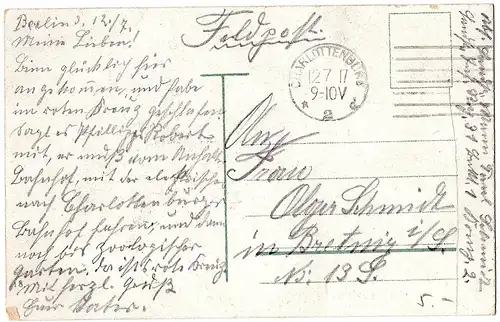 Berlin d. 12/7.
Meine Lieben!
Bin glücklich hier
angekommen, und habe
im roten Kreuz geschlafen
sagt es Robert
mit, er muß vom Anhalt.
Bahnhof, mit der elektrischen
nach Charlottenburger
Bahnhof fahren, und dann
noch bis Zoologischer
Garten. da ist's rote Kreuz.
Mit herzl. Gruß
Euer Vater.
Feldpost
CHARLOTTENBURG
12.7.17
9-10V
* 2
An
Frau
Olga Schmidt
in Bretnig i/S.
No. 13 S.